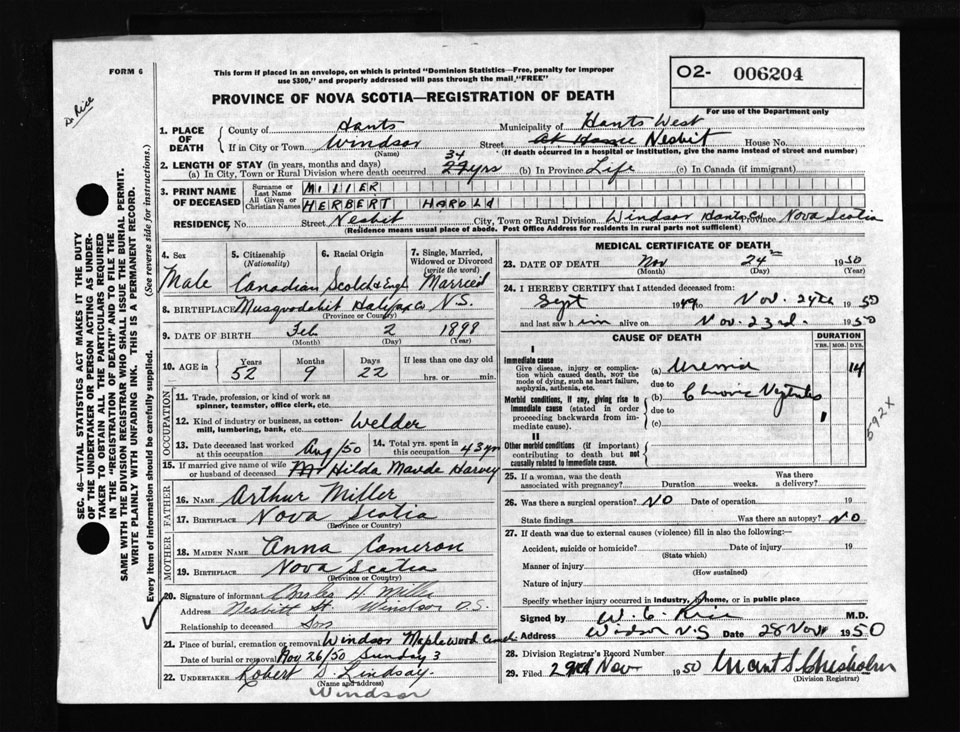 FORM 6
Dr Rice
This form if placed in an envelope, on which is printed "Dominion Statistics—Free, penalty for improper
use $300," and properly addressed will pass through the mail "FREE"
O2- 006204
For use of the Department only
PROVINCE OF NOVA SCOTIA—REGISTRATION OF DEATH
1. PLACE OF DEATH
County of Hants Municipality of Hants West
If in City or Town Windsor Street Nesbit House No.
(Name) (If death occurred in a hospital or institution, give the name instead of street and number)
2. LENGTH OF STAY (in years, months and days)
(a) In City, Town or Rural Division where death occurred 34 yrs (b) In Province Life (c) In Canada (if immigrant)
3. PRINT NAME OF DECEASED
Surname or Last Name MILLER
All Given or Christian Names HERBERT HAROLD
RESIDENCE, No. Street Nesbit City, Town or Rural Division Windsor Hants Co Province Nova Scotia
(Residence means usual place of abode. Post Office Address for residents in rural parts not sufficient)
4. Sex Male
5. Citizenship (Nationality) Canadian
6. Racial Origin Scotch & Engl
7. Single, Married, Widowed or Divorced (write the word) Married
8. BIRTHPLACE Musquodobit Halifax Co N.S.
(Province or County)
9. DATE OF BIRTH Feb 2 1898
(Month) (Day) (Year)
10. AGE in Years 52 Months 9 Days 22 If less than one day old hrs. or min.
OCCUPATION
11. Trade, profession, or kind of work as
spinner, teamster, office clerk, etc.
12. Kind of industry or business, as cotton-
mill, lumbering, bank, etc. Welder
13. Date deceased last worked at this occupation Aug/50
14. Total yrs. spent in this occupation 43 yrs
15. If married give name of wife
or husband of deceased Hilda Maude Harvey
FATHER
16. NAME Arthur Miller
17. BIRTHPLACE Nova Scotia
(Province or Country)
MOTHER
18. MAIDEN NAME Anna Cameron
19. BIRTHPLACE Nova Scotia
(Province or Country)
20. Signature of informant H Miller
Address Nesbitt St. Windsor N.S.
Relationship to deceased Son
21. Place of burial, cremation or removal Windsor Maplewood
Date of burial or removal Nov 26/50 Sunday 3
22. UNDERTAKER Robert D Lindsay.
(Name and Address)
Windsor
MEDICAL CERTIFICATE OF DEATH
23. DATE OF DEATH Nov 24th 1950
(Month) (Day) (Year)
24. I HEREBY CERTIFY that I attended deceased from:
Sept 1949 to Nov. 24th 1950
and last saw him alive on Nov. 23rd. 1950
CAUSE OF DEATH DURATION
YRS. MOS. DYS.
I
Immediate cause
Give disease, injury or complica-
tion which caused death, NOT the
mode of dying, such as heart failure,
asphyxia, asthenia, etc.
(a) Uremia 14
due to
Morbid conditions, if any, giving rise to
immediate cause (stated in order
proceeding backwards from im-
mediate cause).
(b) Chronic
due to
(c)
II
Other morbid conditions (if important)
contributing to death but not
causally related to immediate cause.
592X
25. If a woman, was the death
associated with pregnancy? Duration weeks. Was there a delivery?
26. Was there a surgical operation? NO Date of operation 19
State findings Was there an autopsy? NO
27. If death was due to external causes (violence) fill in also the following:
Accident, suicide or homicide? Date of injury 19
(State which)
Manner of injury
(How sustained)
Nature of injury
Specify whether injury occurred in industry, home, or in public place
Signed by W. C. Rice M.D.
Address Windsor N.S Date 28 Nov 1950
28. Division Registrar's Record Number
29. Filed 29th Nov 1950 Grant S. Chisholm
(Division Registrar)
SEC. 46—VITAL STATISTICS ACT MAKES IT THE DUTY
OF THE UNDERTAKER OR PERSON ACTING AS UNDER-
TAKER TO OBTAIN ALL THE PARTICULARS REQUIRED
IN THE "REGISTRATION OF DEATH" AND TO FILE THE
SAME WITH THE DIVISION REGISTRAR WHO SHALL ISSUE THE BURIAL PERMIT.
WRITE PLAINLY WITH UNFADING INK. THIS IS A PERMANENT RECORD.
Every item of information should be carefully supplied. (See reverse side for instructions.)